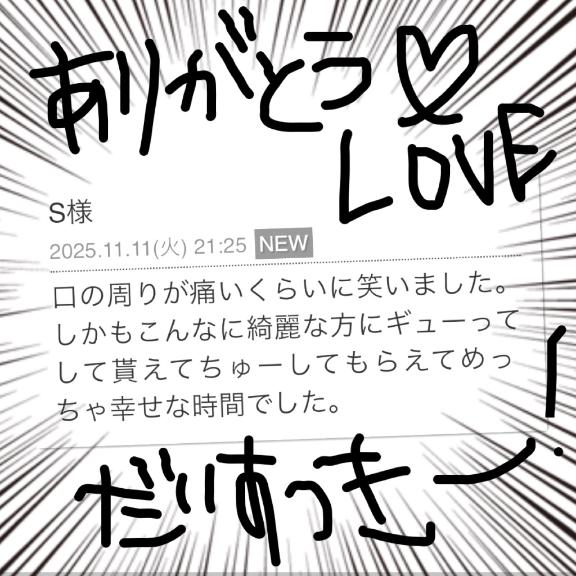 ありがとう♡
LOVE
S様
2025.11.11(火) 21:25 NEW
口の周りが痛いくらいに笑いました。
しかもこんなに綺麗な方にギューって
して貰えてちゅーしてもらえてめっ
ちゃ幸せな時間でした。
だいあっきー!